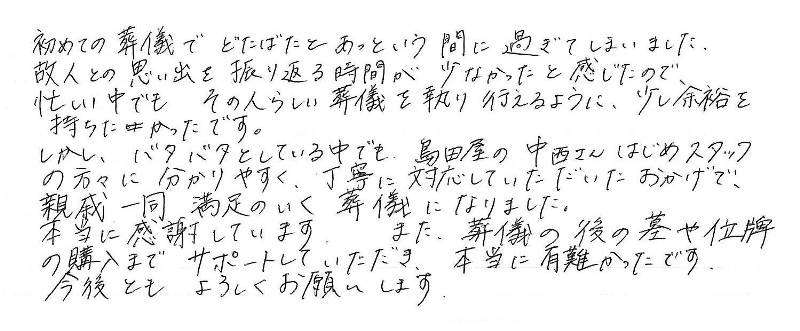 初めての葬儀で どたばたと あっという間に過ぎてしまいました.
故人との思い出を振り返る時間が 少なかったと感じたので、
忙しい中でも その人らしい葬儀を執り行えるように、少し余裕を
持ちたかったです。
しかし、バタバタとしている中でも、島田屋の中西さんはじめスタッフ
の方々に分かりやすく、丁寧に対応していただいたおかげで、
親戚一同 満足のいく葬儀になりました。
本当に感謝しています. また、葬儀の後の墓や位牌
の購入まで サポートしていただき、本当に有難かったです.
今後とも よろしくお願いします.